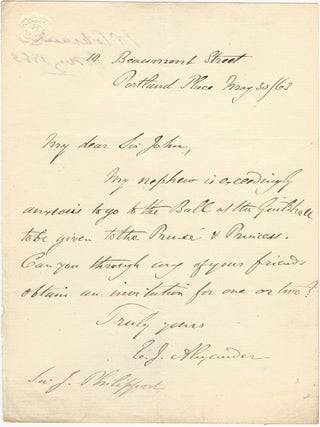 10. Beaumont Street
Portland Place May 30/63
My dear Sir John,
My nephew is exceedingly
anxious to go to the Ball at the Guildhall
to be given to the Prince & Princess.
Can you through any of your friends
obtain an invitation for one or two?
Truly yours
E. J. Alexander
Sir J. Philippart